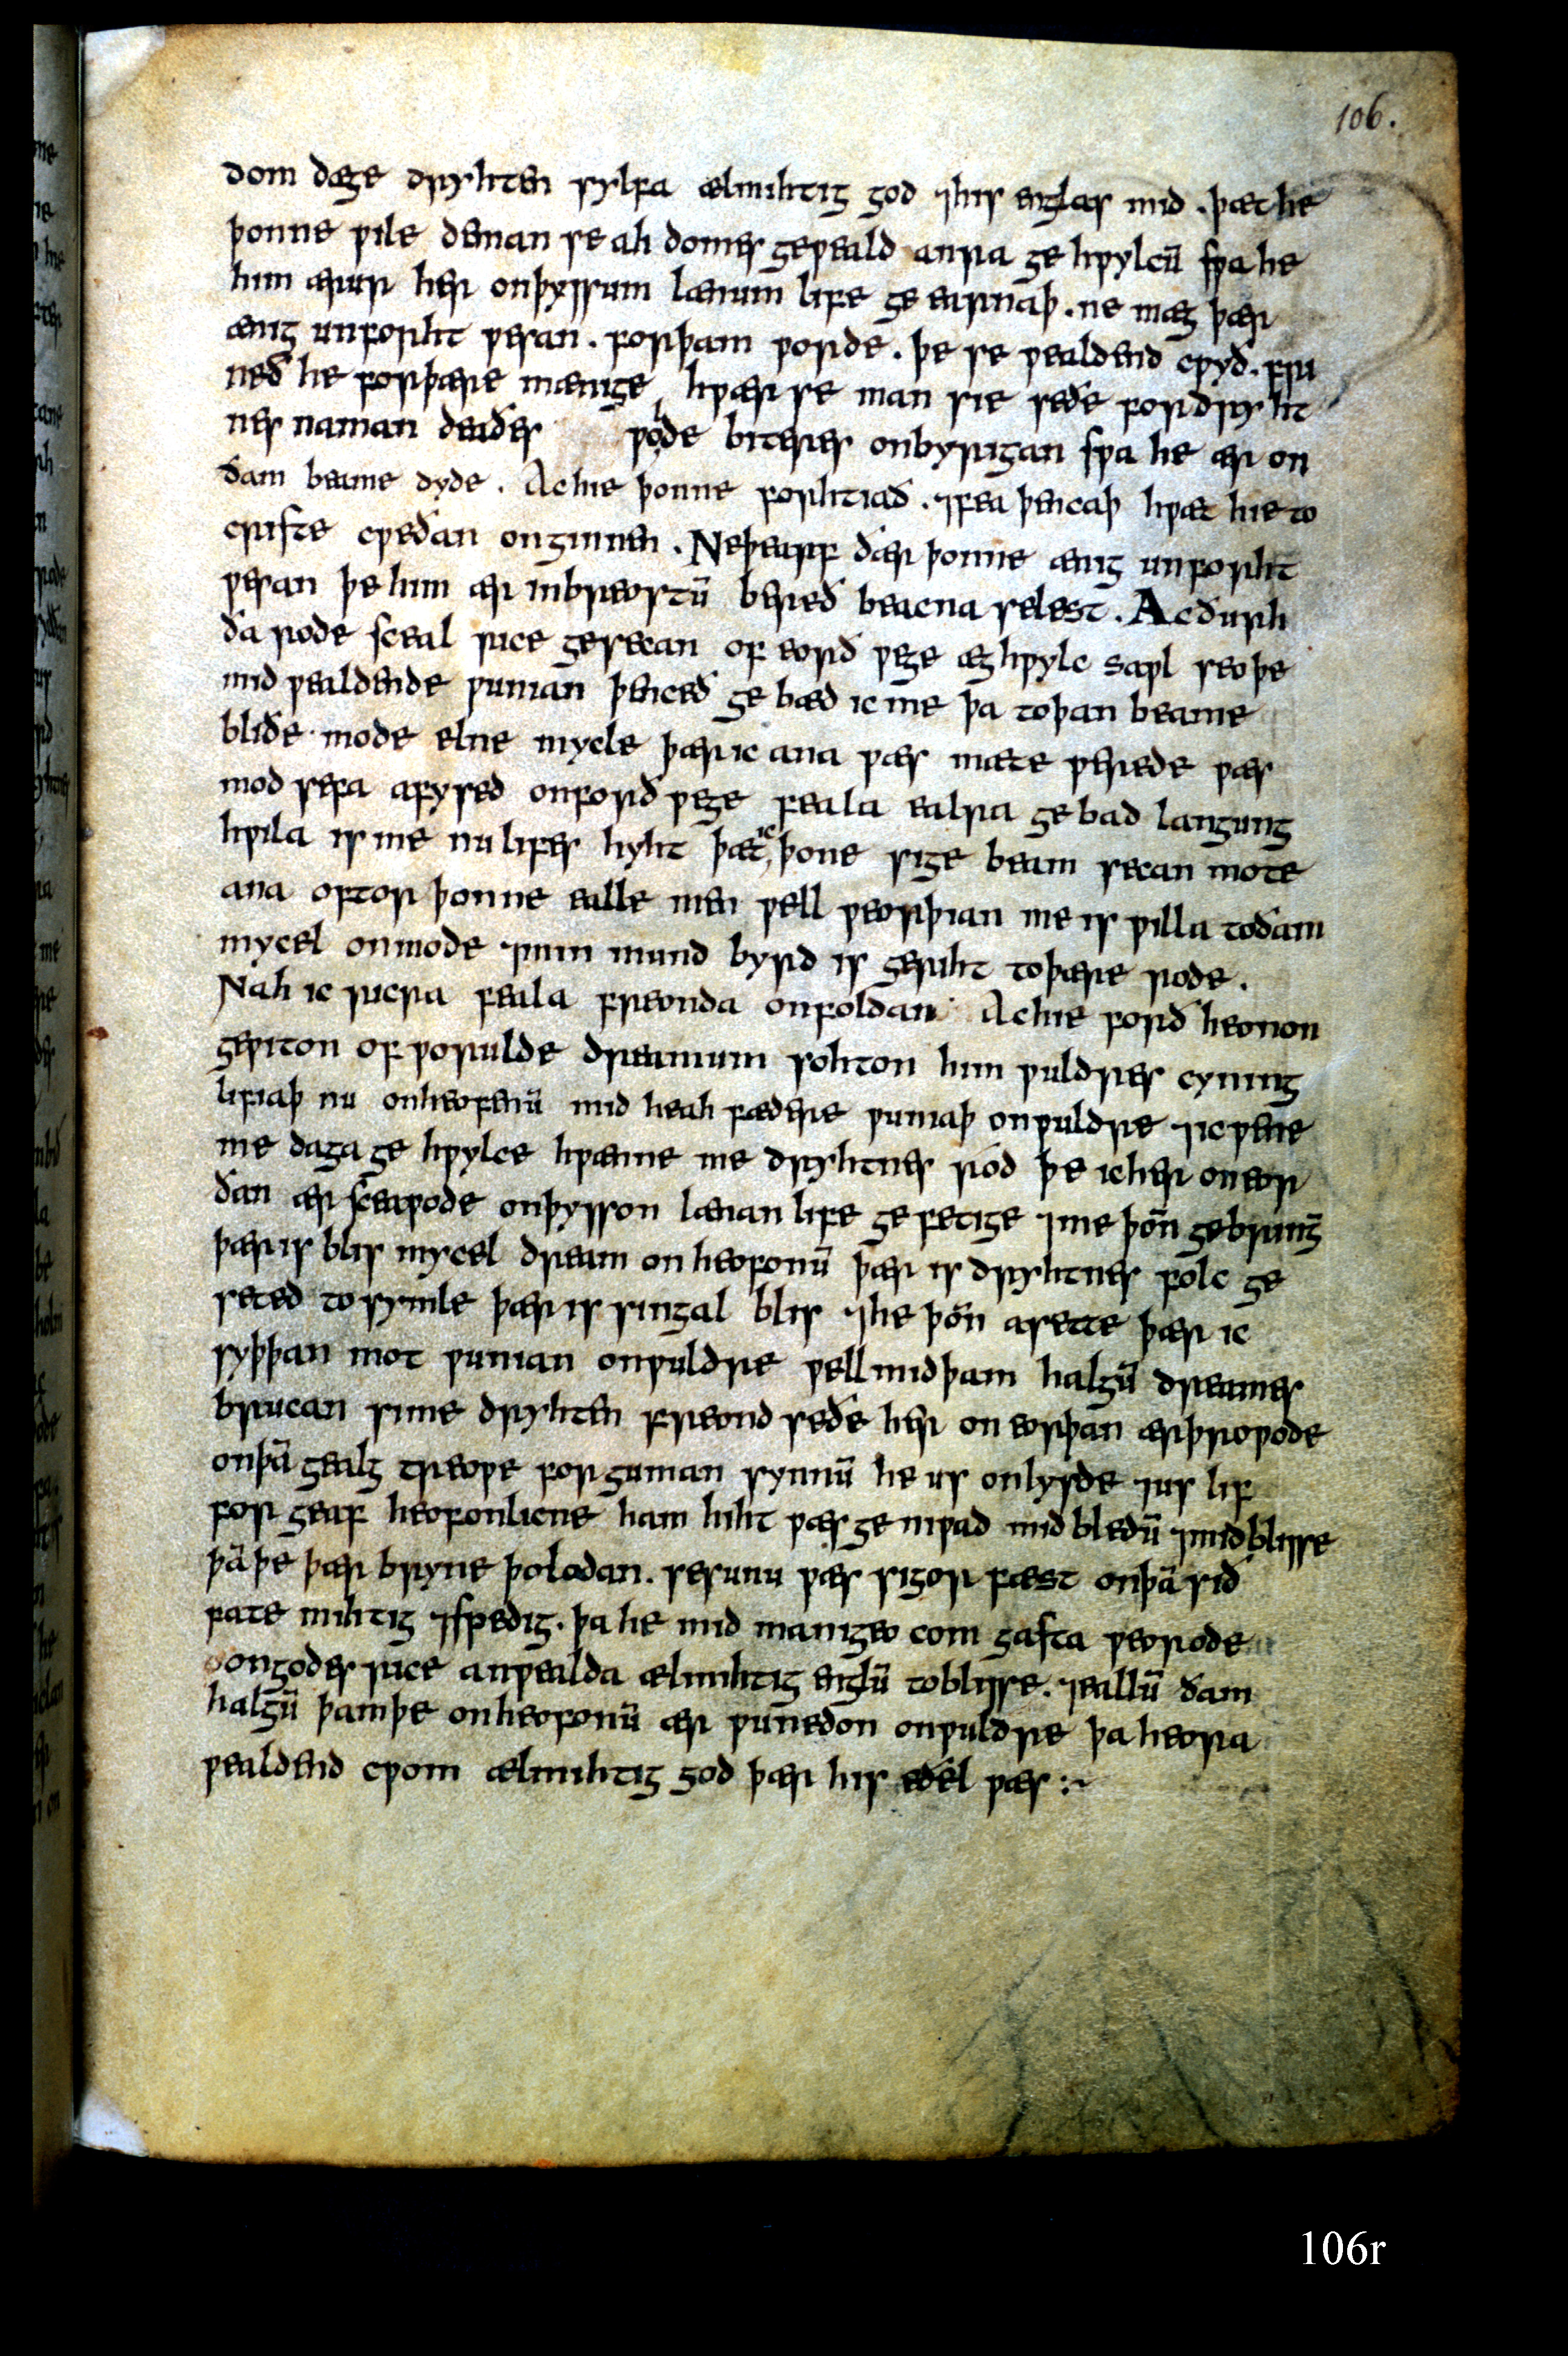 106.
dom dæge dryhten sylfa ælmihtig god ⁊his englas mid . þæt he
þonne ƿile deman se ah domes geƿeald anra ge hƿylcū sƿa he
him ærur her onþyssum lænum life ge earnaþ . ne mæg þær
ænig unforht ƿesan . forþam ƿorde . þe se ƿealdend cƿyð . fri
neð he forþære mænige hƿær se man sie seðe fordryht
nes naman deaðes ƿolde biteres onbyrigan sƿa he ær on
ðam beame dyde . Achie þonne forhtiað . ⁊fea þencaþ hƿæt hie to
criste cƿeðan onginnen . Neþearf ðær þonne ænig unforht
ƿesan þe him ær inbreostū bereð beacna selest . Acðurh
ða rode sceal rice gesecan of eorð ƿege æghƿylc saƿl seoþe
mid ƿealdende ƿunian þenceð ge bæd ic me þa toþan beame
bliðe mode elne mycle þær ic ana ƿæs mæte ƿerede ƿæs
mod sefa afysed onforð ƿege feala ealra ge bad langung
hƿila is me nu lifes hyht þæt ic þone sige beam secan mote
ana oftor þonne ealle men ƿell ƿeorþian me is ƿilla toðam
mycel onmode ⁊min mund byrd is geriht toþære rode .
Nah ic ricra feala freonda onfoldan Achie forð heonon
geƿiton of ƿorulde dreamum sohton him ƿuldres cyning
lifiaþ nu onheofenū mid heah fædere ƿuniaþ onƿuldre ⁊ic ƿene
me daga ge hƿylce hƿænne me dryhtnes rod þe icher oneor
ðan ær sceaƿode onþysson lænan life ge fetige ⁊me þōn gebringē
þær is blis mycel dream on heofonū þær is dryhtnes folc ge
seted to symle þær is singal blis ⁊he þōn asette þær ic
syþþan mot ƿunian onƿuldre ƿell midþam halgū dreames
brucan sime dryhten freond seðe her on eorþan ærþroƿode
onþā gealg treoƿe forguman synnū he us onlysde ⁊us lif
for geaf heofonlicne ham hiht ƿæs ge niƿad mid bledū ⁊midblisse
þā þe þær bryne þolodan . sesunu ƿæs sigor fæst onþā sið
fate mihtig ⁊spedig . þa he mid manigeo com gasta ƿeorode
ongodes rice anƿealda ælmihtig englū toblisse . ⁊eallū ðam
halgū þamþe onheofonū ær ƿunedon onƿuldre þa heora
ƿealdend cƿom ælmihtig god þær his eðel ƿæs :~
106r